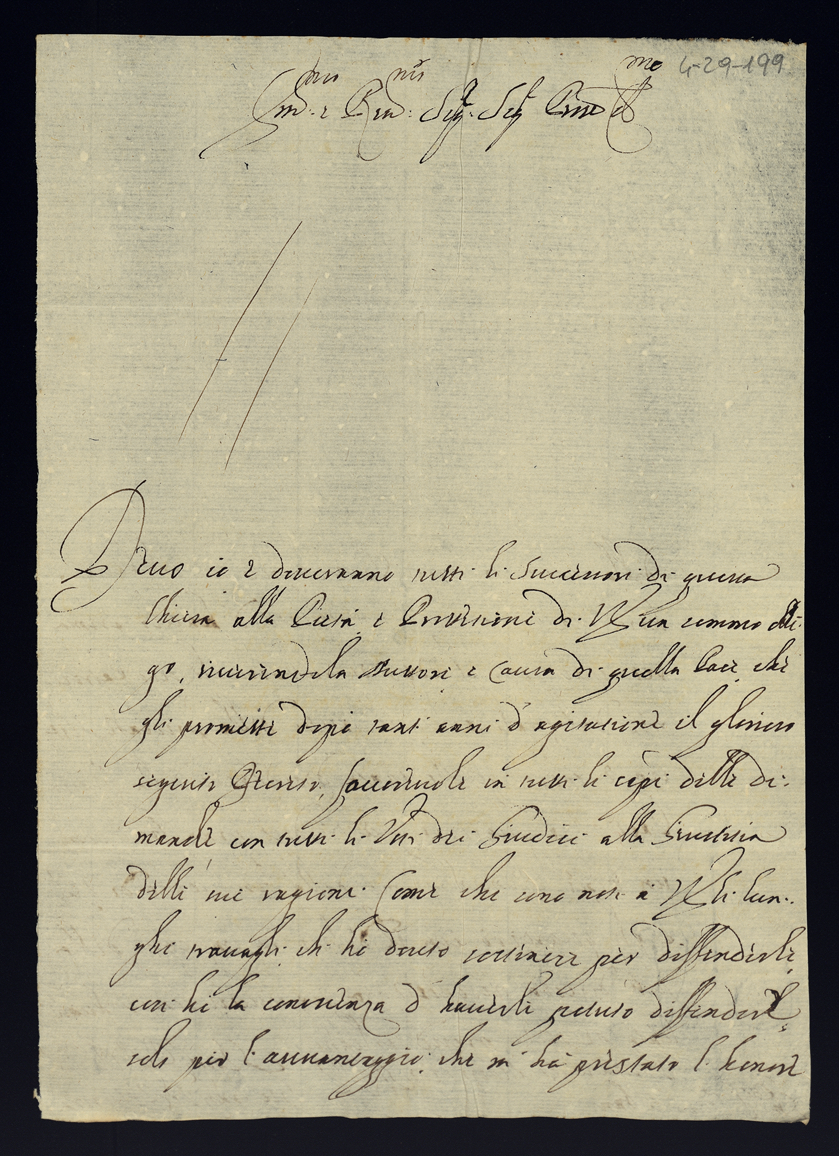 4-29-199
Em.mo e Rev.mo Sig.r Sig.r Prone Col.mo
Devo io e doveranno tutti li Successori di questa
Chiesa alla Pietà e Protettione di V. Em.a sommo obli-
go, riverendola Auttore e Causa di quella Pace, che
gli promette dopo tant' anni d'agitatione il glorioso
seguito Decreto, favorevole in tutti li capi delle di-
mande con tutti li Voti dei Giudici alla Giustitia
delle sue ragioni. Come che sono noti a V. Em. li lun-
ghi travagli, ch'ho dovuto sostenere per diffenderle,
così ho la conoscenza d'haverle potuto diffendere
solo per l'avvantaggio, che mi ha prestato l'honore